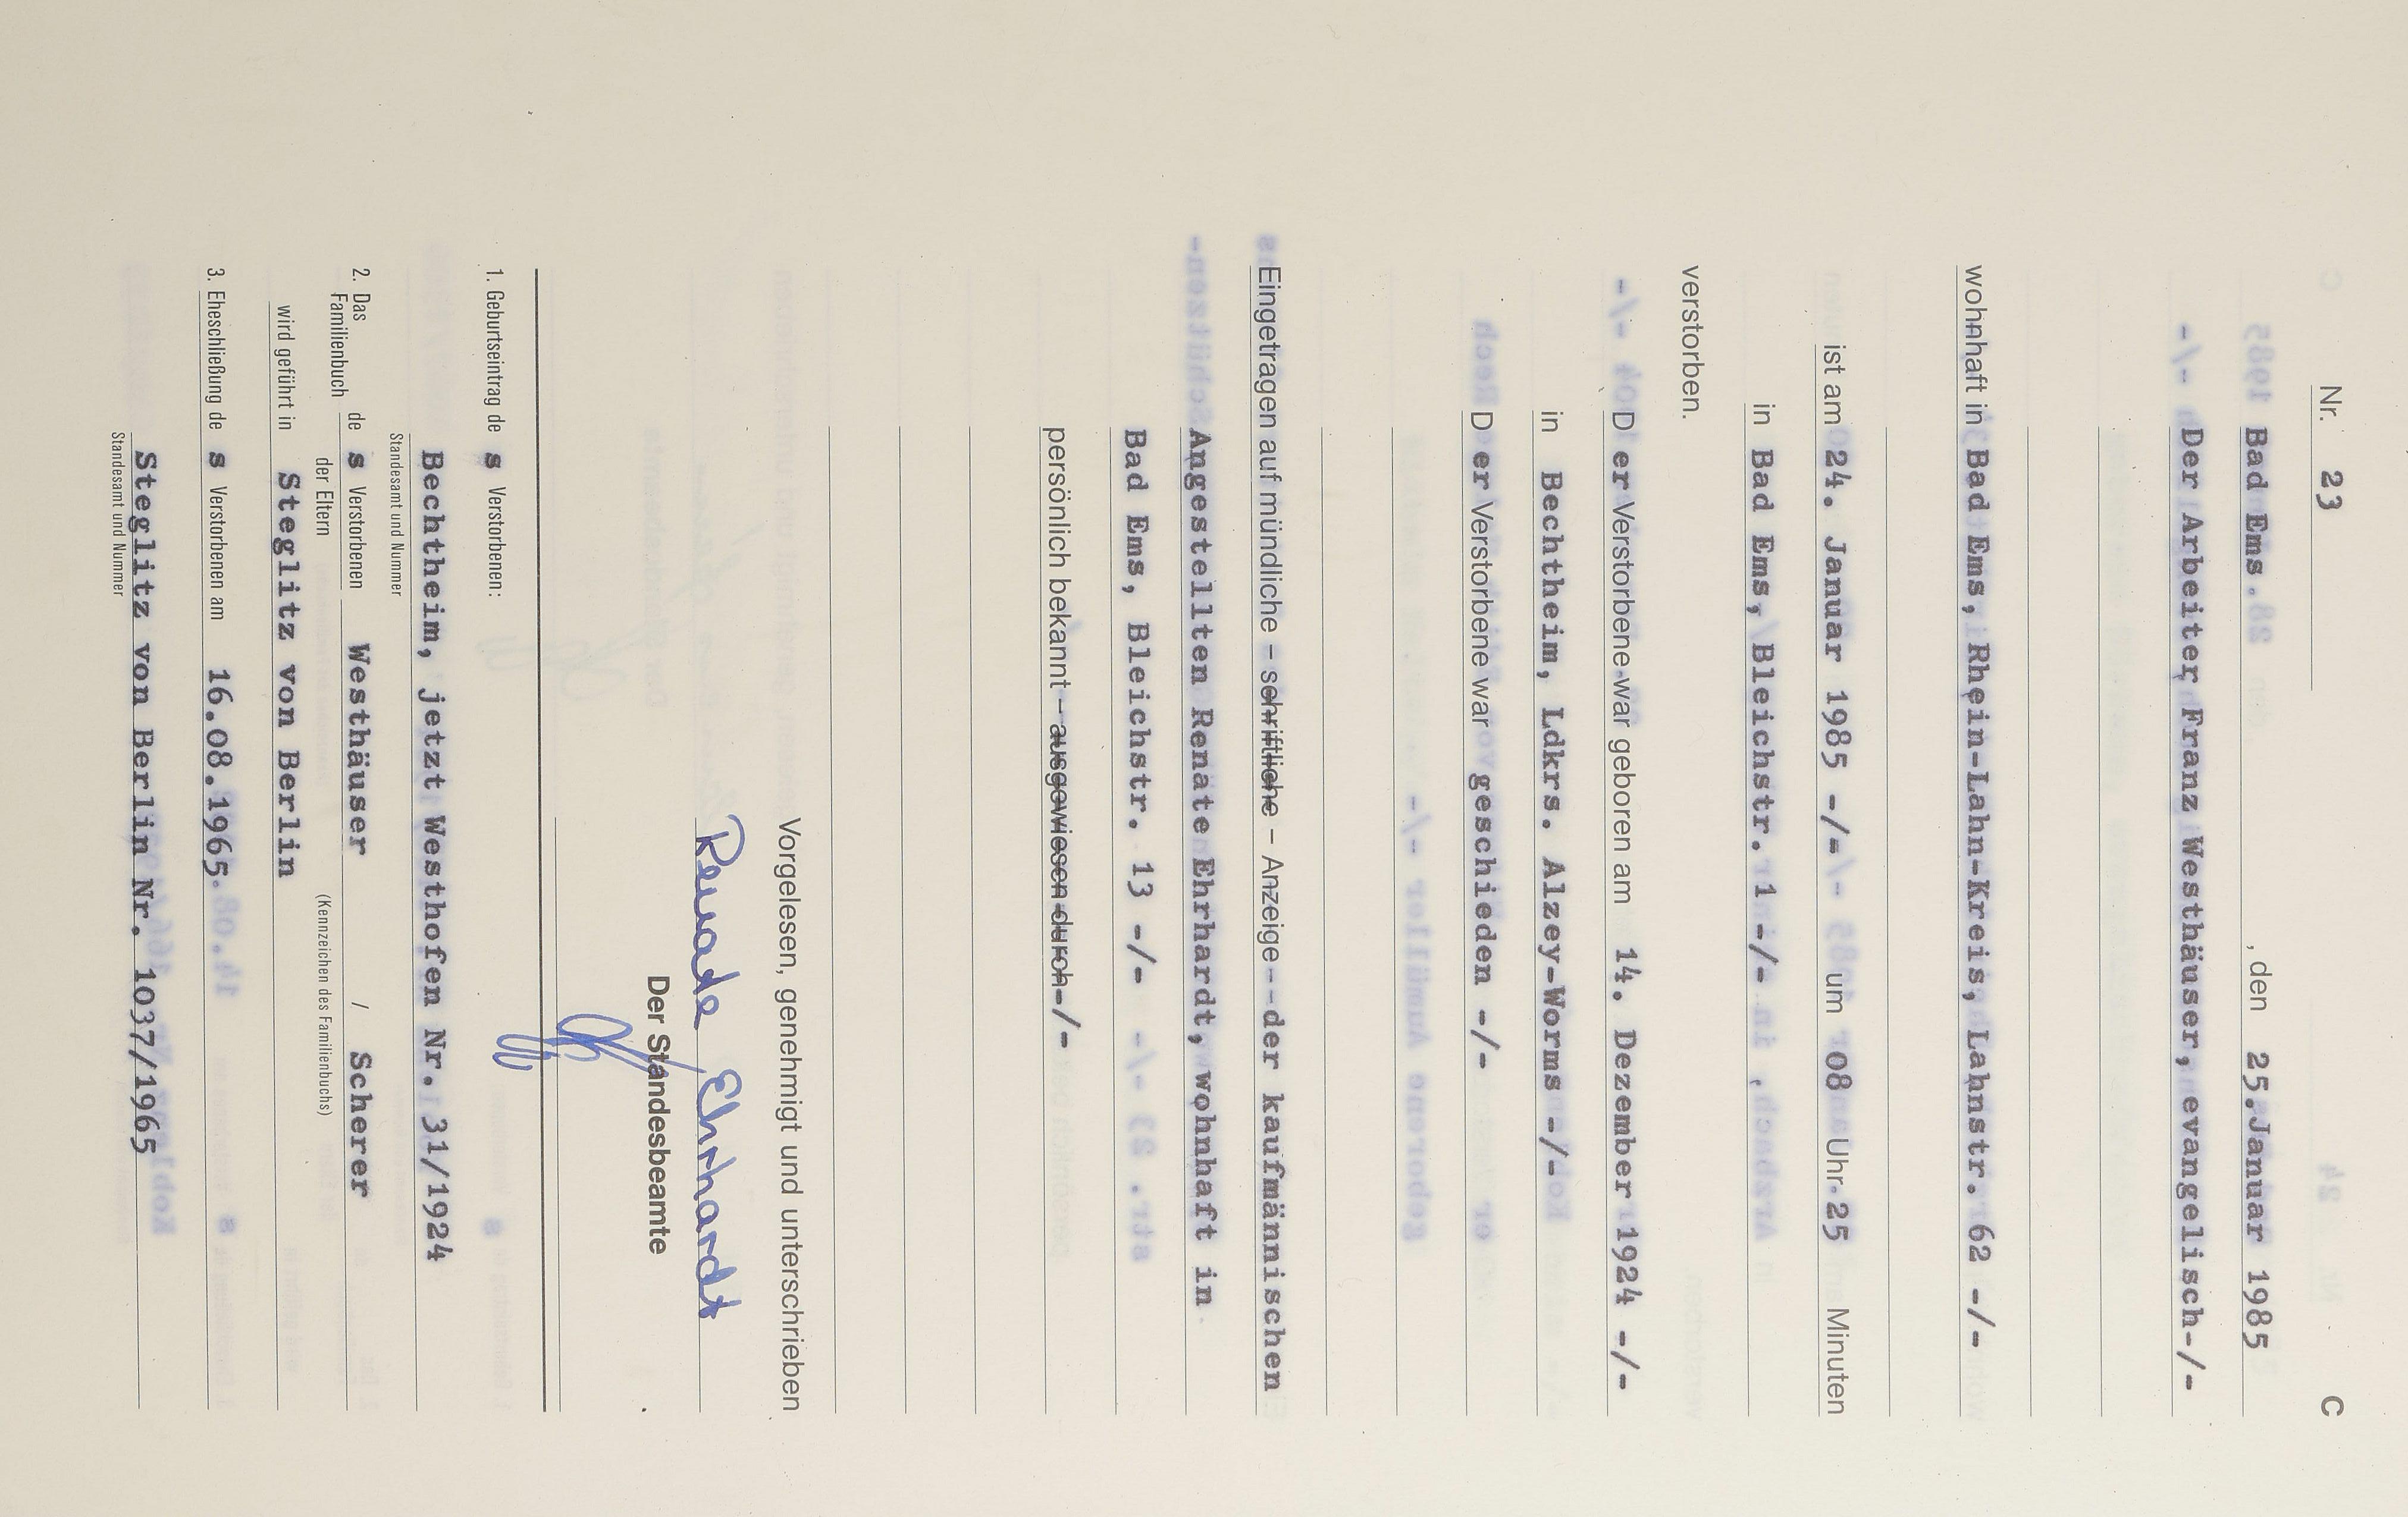 Nr. 23 C
Bad Ems , den 25.Januar 1985
Der Arbeiter Franz Westhäuser, evangelisch-/-
wohnhaft in Bad Ems, Rhein-Lahn-Kreis, Lahnstr. 62 -/-
ist am 024. Januar 1985 -/- um 08 Uhr 25 Minuten
in Bad Ems, Bleichstr. 1 -/-
verstorben.
D er Verstorbene war geboren am 14. Dezember 1924 -/-
in Bechtheim, Ldkrs. Alzey-Worms -/-
D er Verstorbene war geschieden -/-
Eingetragen auf mündliche – schriftliche – Anzeige - - der kaufmännischen
Angestellten Renate Ehrhardt, wohnhaft in
Bad Ems, Bleichstr. 13 -/-
persönlich bekannt – ausgewiesen durch -/-
Vorgelesen, genehmigt und unterschrieben
Renate Ehrhardt
Der Standesbeamte
1. Geburtseintrag de s Verstorbenen:
Bechtheim, jetzt Westhofen Nr. 31/1924
Standesamt und Nummer
2. Das Familienbuch de s Verstorbenen Westhäuser / Scherer
der Eltern (Kennzeichen des Familienbuchs)
wird geführt in Steglitz von Berlin
3. Eheschließung de s Verstorbenen am 16.08.1965
Steglitz von Berlin Nr. 1037/1965
Standesamt und Nummer